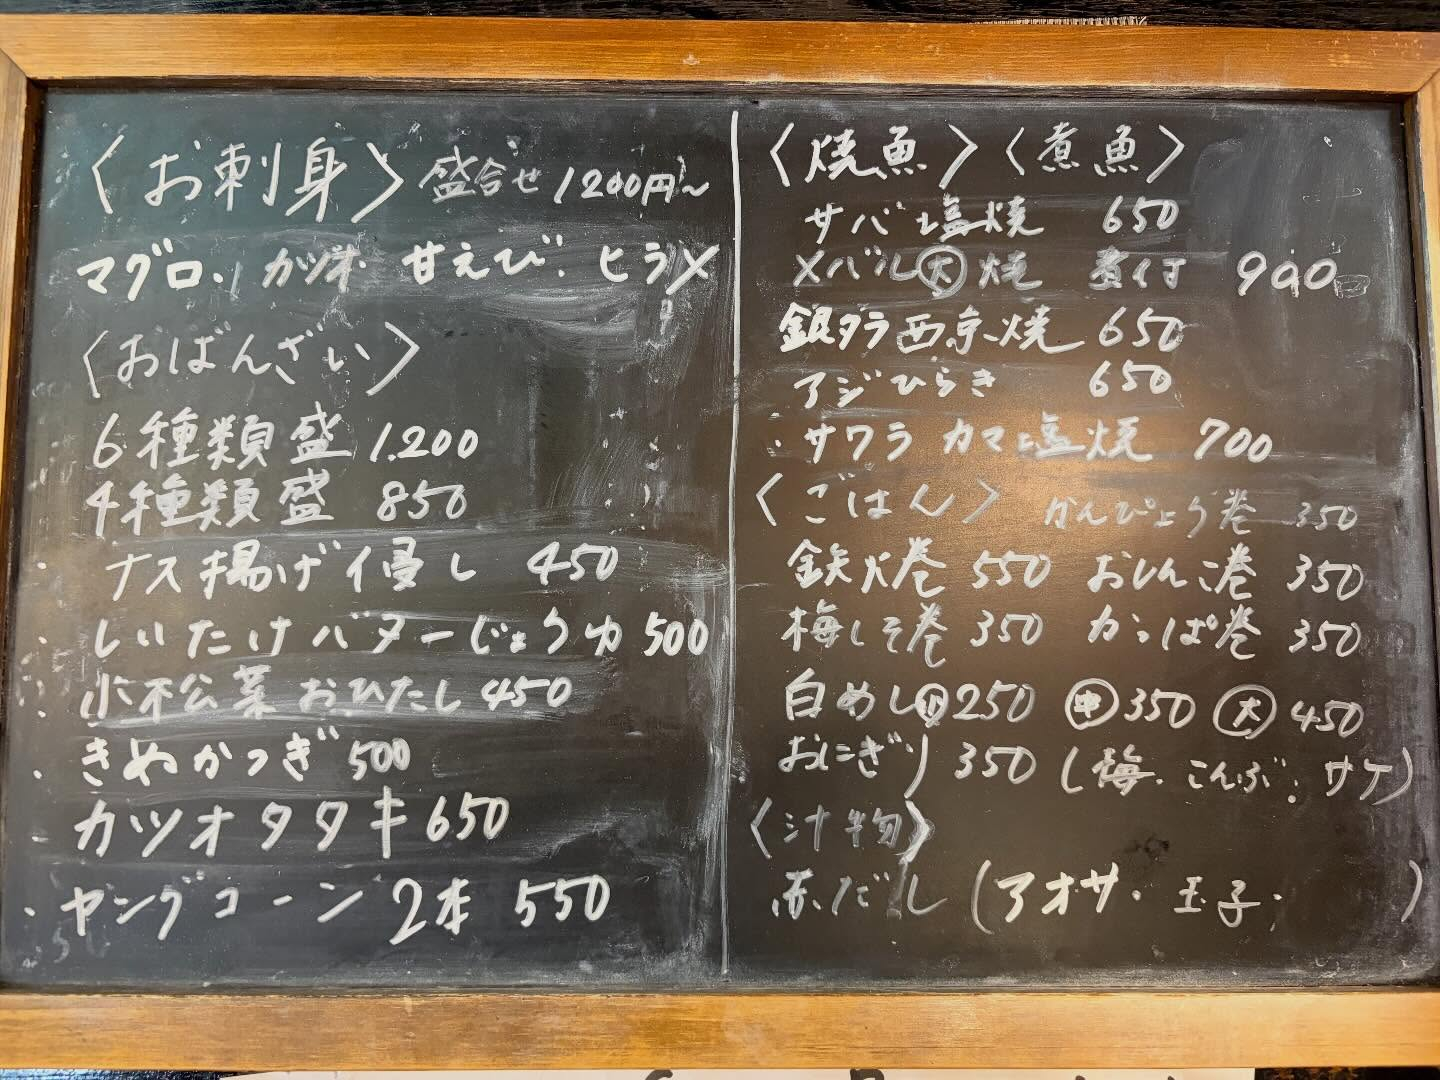 〈お刺身〉盛合せ 1200円〜
マグロ. カツオ. 甘えび. ヒラメ
〈おばんざい〉
6種類盛 1.200
4種類盛 850
・ナス揚げ侵し 450
・しいたけバターじょうゆ 500
・小松菜おひたし 450
・きぬかつぎ 500
カツオタタキ 650
・ヤングコーン 2本 550
〈焼魚〉〈煮魚〉
サバ塩焼 650
メバル大焼 煮付 900
銀ダラ西京焼 650
アジひらき 650
・サワラ カマ塩焼 700
〈ごはん〉 かんぴょう巻 350
鉄火巻 550 おしんこ巻 350
梅しそ巻 350 かっぱ巻 350
白めし小250 中350 大450
おにぎり 350 (梅. こんぶ. サケ)
〈汁物〉
赤だし (アオサ・玉子・ )